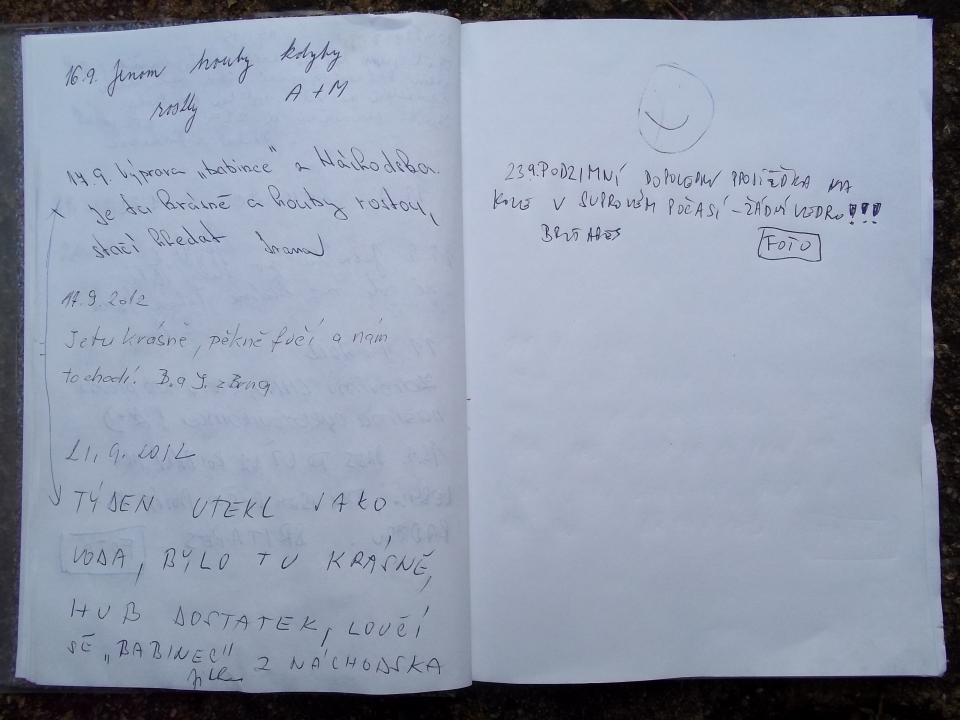 16.9. Jenom houby kdyby
rostly A+M
17.9. Výprava „babince“ z Náchodska.
je tu krásně a houby rostou,
stačí hledat Ivana
17.9.2012
Je tu krásně, pěkně fučí a nám
to chodí. B. a J. z Brna
21.9.2012
TÝDEN UTEKL JAKO
VODA, BYLO TU KRÁSNĚ,
HUB DOSTATEK, LOUČÍ
SE „BABINEC“ Z NÁCHODSKA
23.9. PODZIMNÍ DOPOLEDNÍ PROJÍŽĎKA NA
KOLE V SUPROVÉM POČASÍ - ŽÁDNÝ VEDRO!!!
FOTO